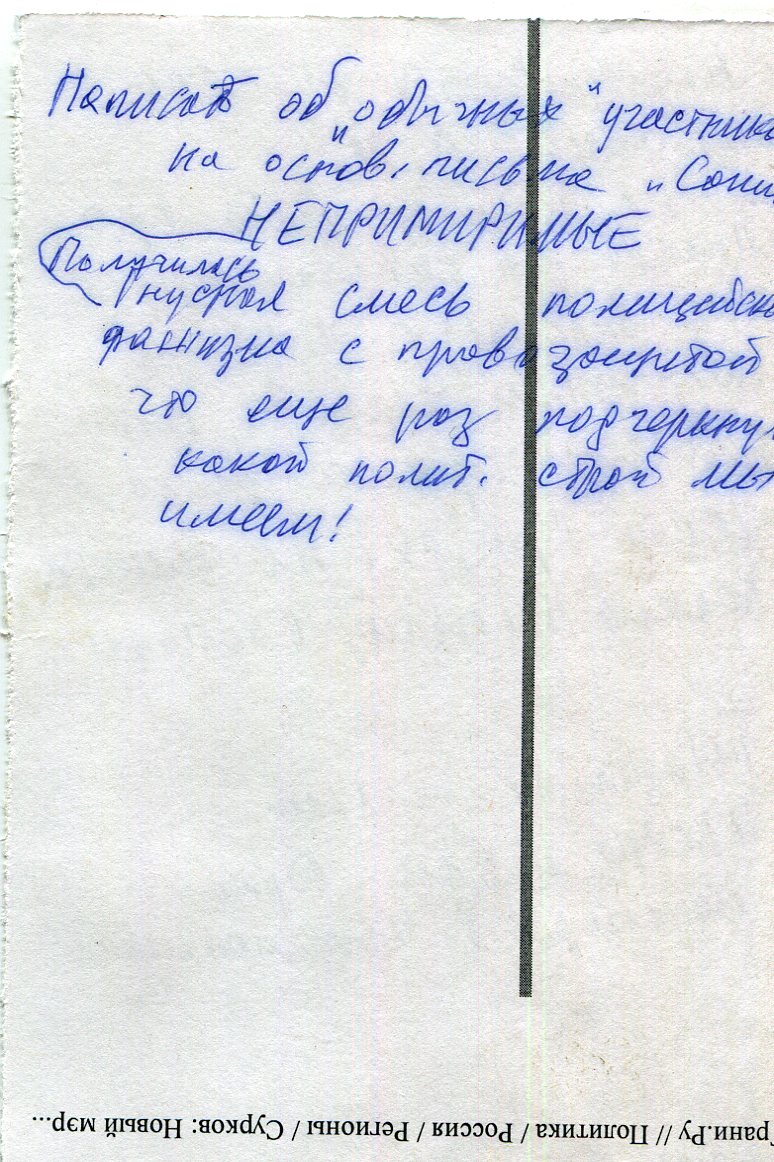 Написать об "обычных" участника
на основ. письма "Сони
НЕПРИМИРИМЫЕ
Получилась
Гнусная смесь полицейско
фашизма с правозащитой
что еще раз подчеркну
какой полит. строй мы
имеем!
Грани.Ру // Политика / Россия / Регионы / Сурков: Новый мэр...